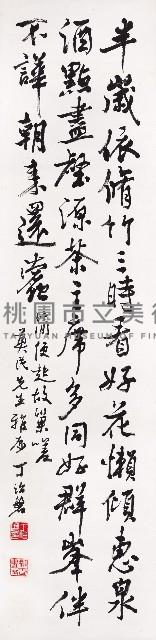 半歲依脩竹三時看好花懶傾惠泉
酒點盡壑源茶主席多同好群峯伴
不譁朝來還蠹
簡便起故巢嗟
先生雅屬 丁治磐
桃園市立美術
TAOYUAN MUSEUM OF FINE